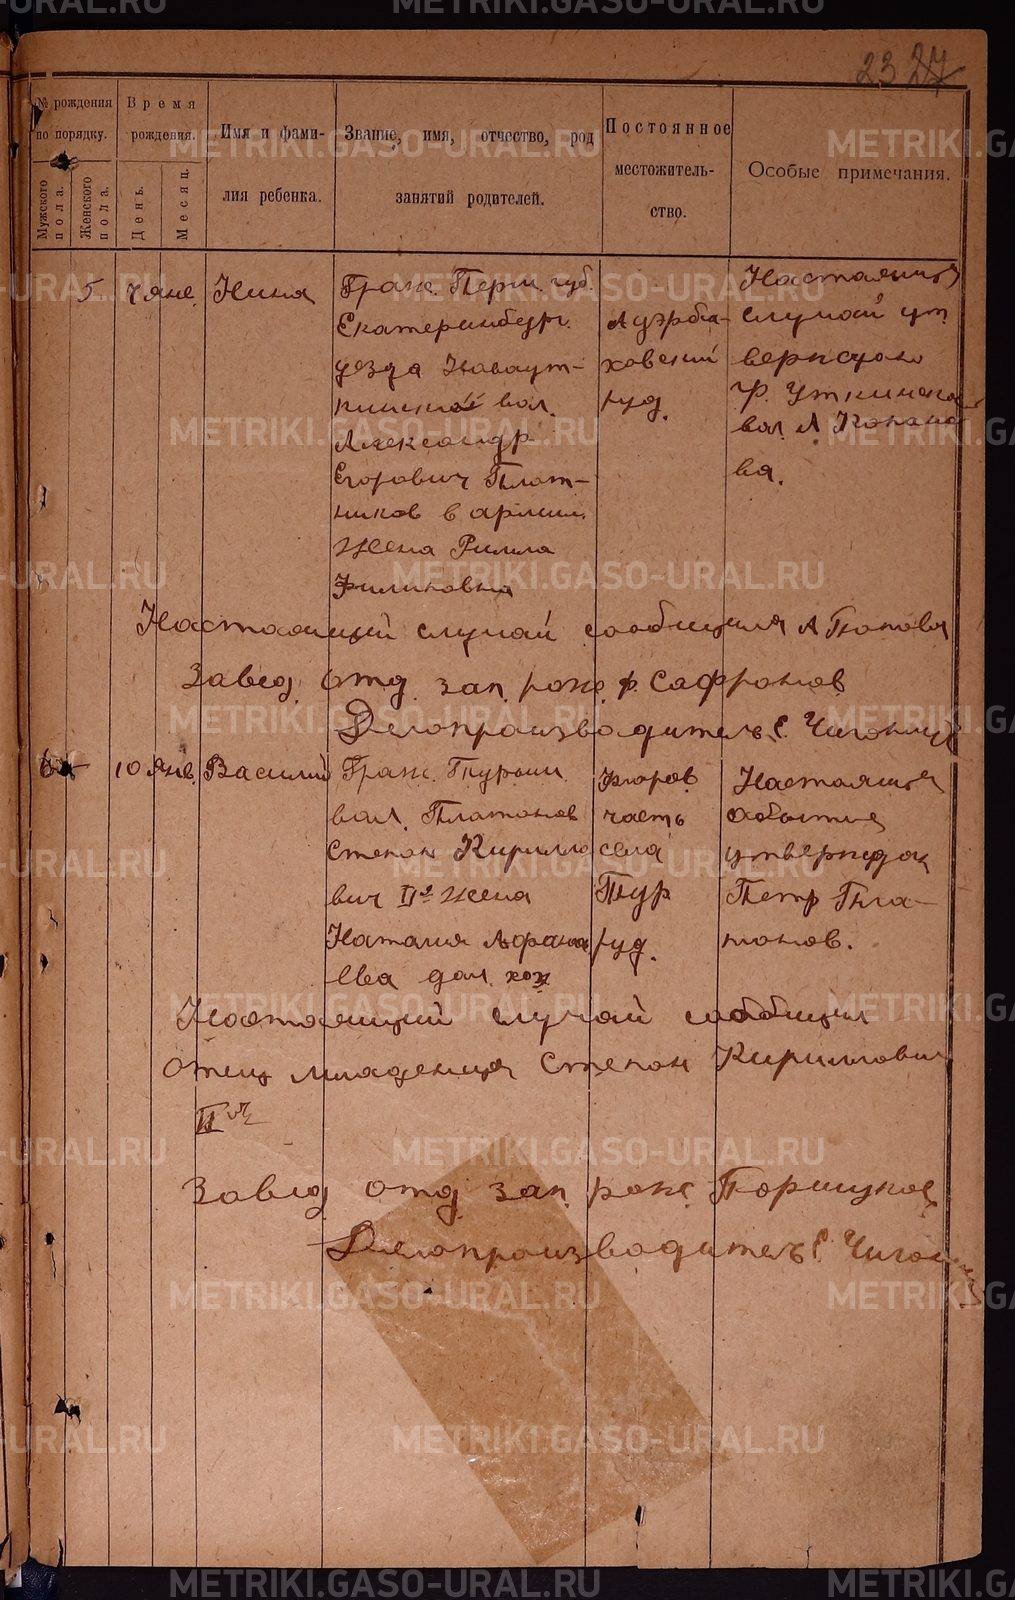 23 27
№ рождения по порядку.
Мужского пола.
Женского пола.
Время рождения.
День.
Месяц.
Имя и фами-
лия ребенка.
Звание, имя, отчество, род
занятий родителей.
Постоянное
местожитель-
ство.
Особые примечания.
5 7 янв. Нина
Граж. Перм. губ.
Екатеринбург.
уезда Новоут-
кинской вол.
Александр
Егорович Плот-
ников в армии.
Жена Римма
Филиповна
Ауэрба-
ховский
руд.
Настоящий
случай ут
верждаю
гр. Уткинска
вол. А.
ва.
Настоящий случай сообщила А Попова
Завед. отд. зап. рожд. Сафронов
Делопроизводитель С.
6 10 янв. Василий
Граж. Турьин.
вол. Платонов
Степан Кирилло
вич II-й жена
Наталия
ева дом. хоз.
часть
села
Тур
руд.
Настоящее
событие
утверждаю
Петр Пла-
тонов.
Настоящий случай сообщил
отец младенца Степан Кириллович
II-й
Завед. отд. зап. рож. Поршунов
Делопроизводитель С.
METRIKI.GASO-URAL.RU